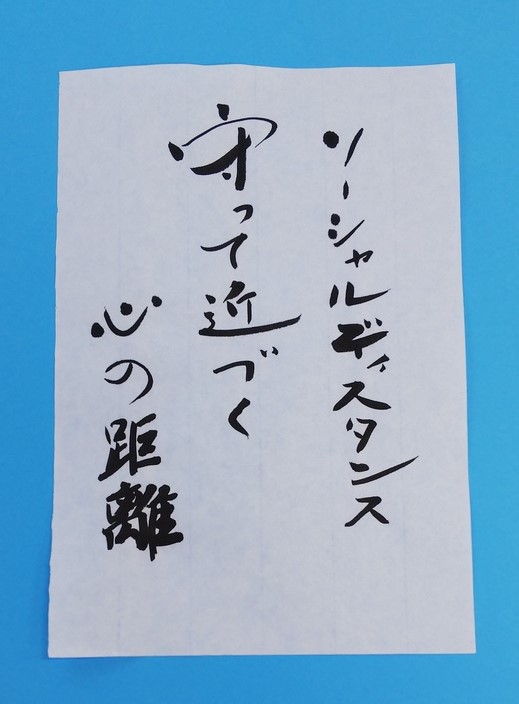 ソーシャルディスタンス
守って近づく
心の距離